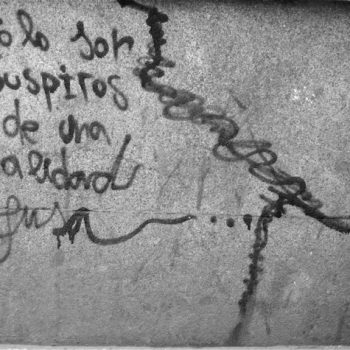 ólo son
uspiros
de una
alidad
fusa